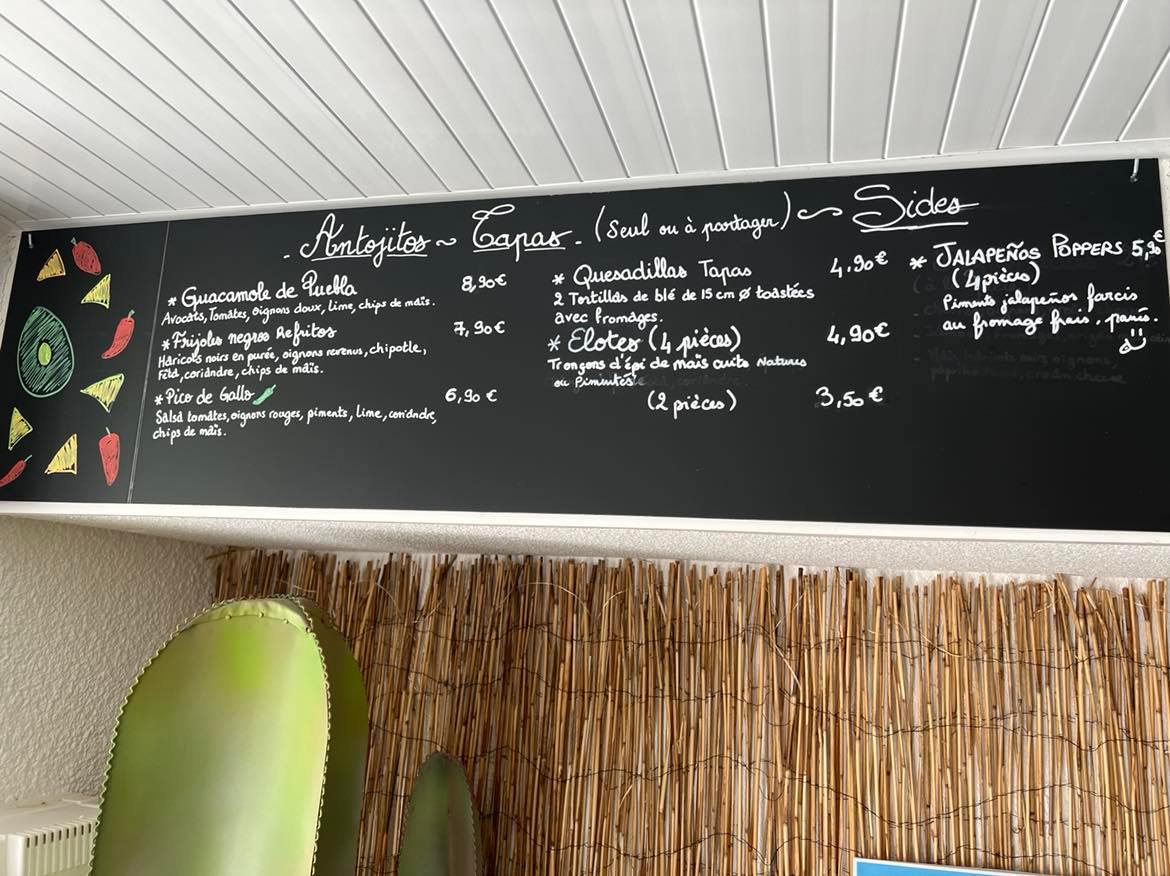 - Antojitos ~ Tapas - (Seul ou à partager) ~ Sides
* Guacamole de Puebla 8,90€
Avocats, Tomates, oignons doux, Lime, chips de maïs.
* Frijoles negros Refritos 7,90€
Haricots noirs en purée, oignons revenus, chipotle,
Féta, coriandre, chips de maïs.
* Pico de Gallo 6,90 €
Salsa tomates, oignons rouges, piments, Lime, coriandre,
chips de maïs.
* Quesadillas Tapas 4,90€
2 Tortillas de blé de 15 cm Ø toastées
avec fromages.
* Elotes (4 pièces) 4,90€
Tronçons d'épi de maïs cuits Natures
ou Pimentés
(2 pièces) 3,50€
* JALAPEÑOS POPPERS 5,90€
(4 pièces)
Piments jalapeños farcis
au fromage frais, panés.